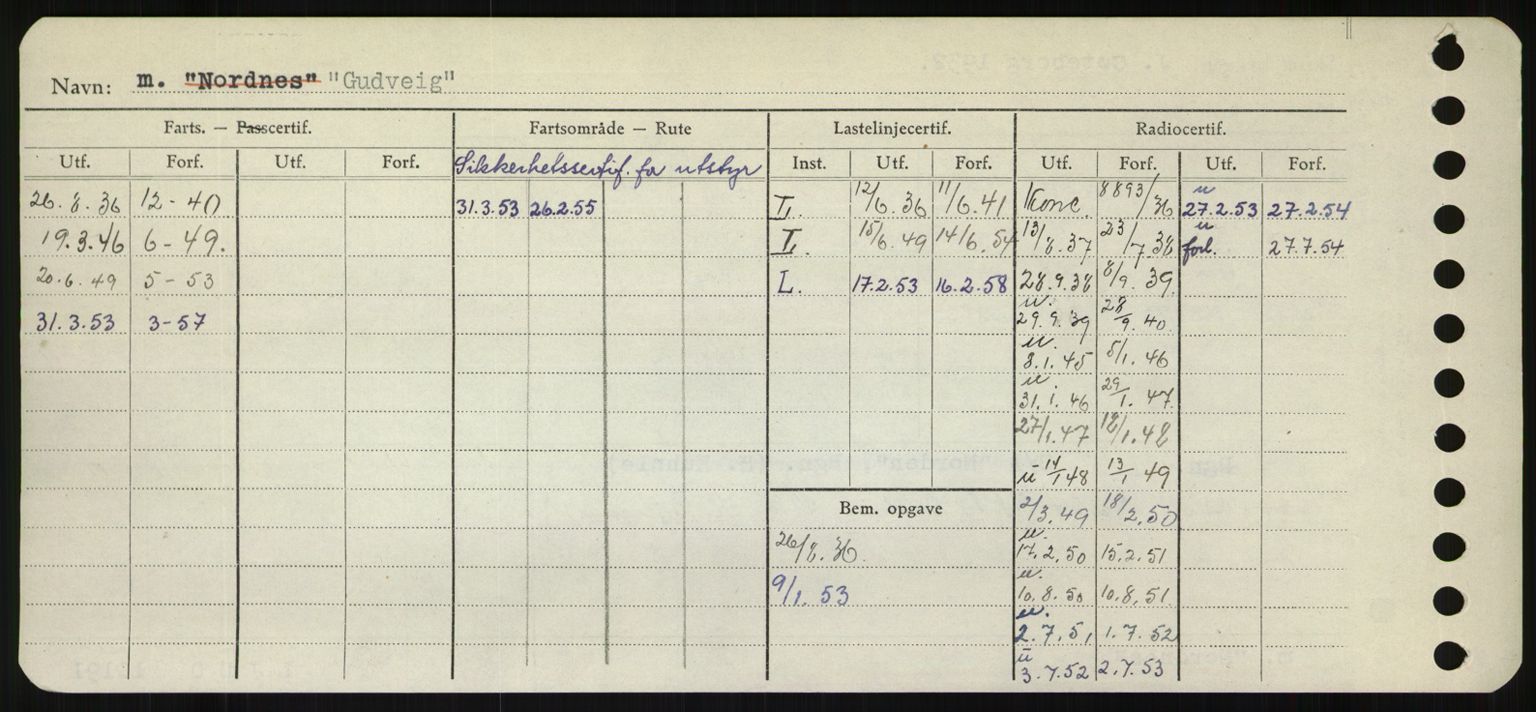 Navn: m. "Nordnes" "Gudveig"
Farts. — Passcertif. Fartsområde — Rute Lastelinjecertif. Radiocertif.
Utf. Forf. Utf. Forf. Sikkerhetssertif. for utstyr Inst. Utf. Forf. Utf. Forf. Utf. Forf.
26.8.36 12-40 31.3.53 26.2.55 L. 12/6.36 11/6.41 Konc. 8893/36 u 27.2.53 27.2.54
19.3.46 6-49. L. 15/6.49 14/6.54 13/8.37 23/7 38 u forl. 27.7.54
20.6.49 5-53 L. 17.2.53 16.2.58 28.9.38 8/9.39
31.3.53 3-57 u. 29.9.39 28/9.40
u. 3.1.45 5/1.46
u. 31.1.46 29/1.47
27/1.47 18/1.48
u 14/1 48 13/1 49
Bem. opgave 2/3.49 18/2.50
26/8.36. u. 17.2.50 15.2.51
9/1.53 u. 10.8.50 10.8.51
u. 2.7.51 1.7.52
u 3.7.52 2.7.53